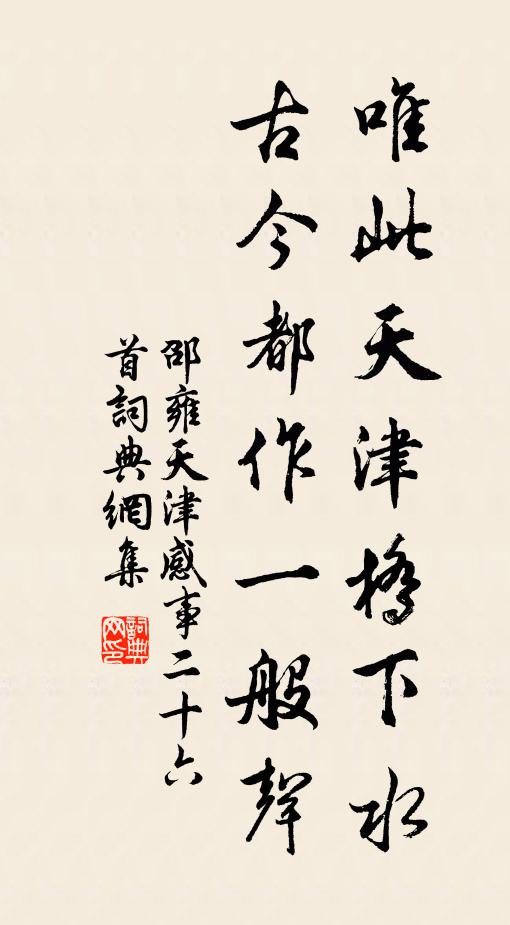 唯此天津橋下水
古今都作一般聲
邵雍天津感事二十六
首詞典網集
詞典
网印